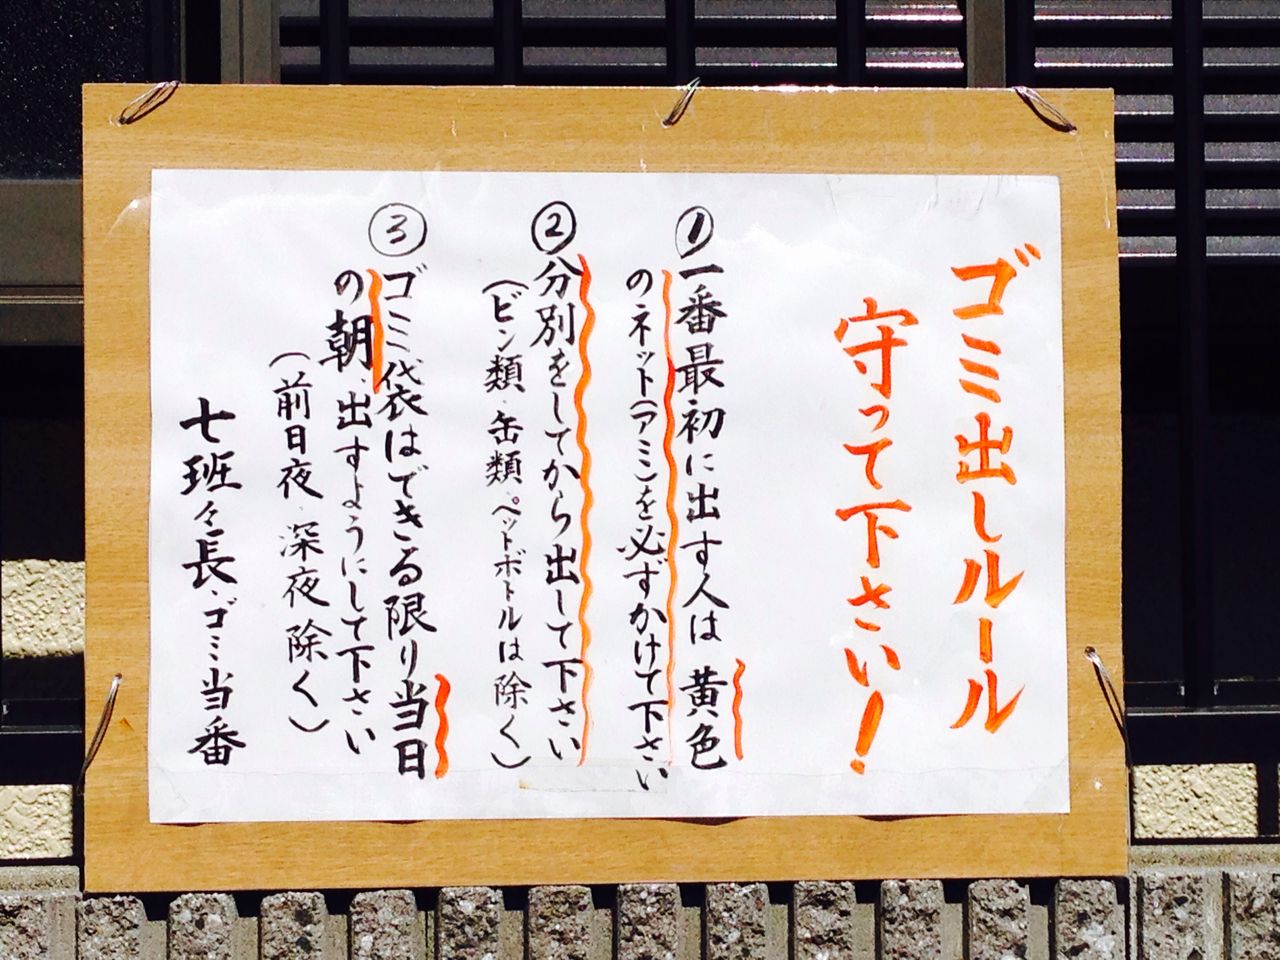 ゴミ出しルール
守って下さい!
①一番最初に出す人は 黄色
のネット(アミ)を必ずかけて下さい
②分別をしてから出して下さい
(ビン類、缶類、ペットボトルは除く)
③ゴミ袋はできる限り当日
の朝、出すようにして下さい
(前日夜、深夜除く)
七班々長、ゴミ当番